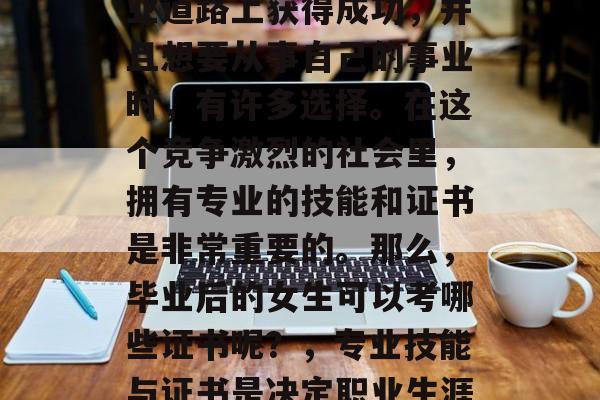 业道路上获得成功，并
且想要从事自己的事业
时，有许多选择。在这
个竞争激烈的社会里，
拥有专业的技能和证书
是非常重要的。那么，
毕业后的女生可以考哪
些证书呢？，专业技能
与证书是决定职业生涯